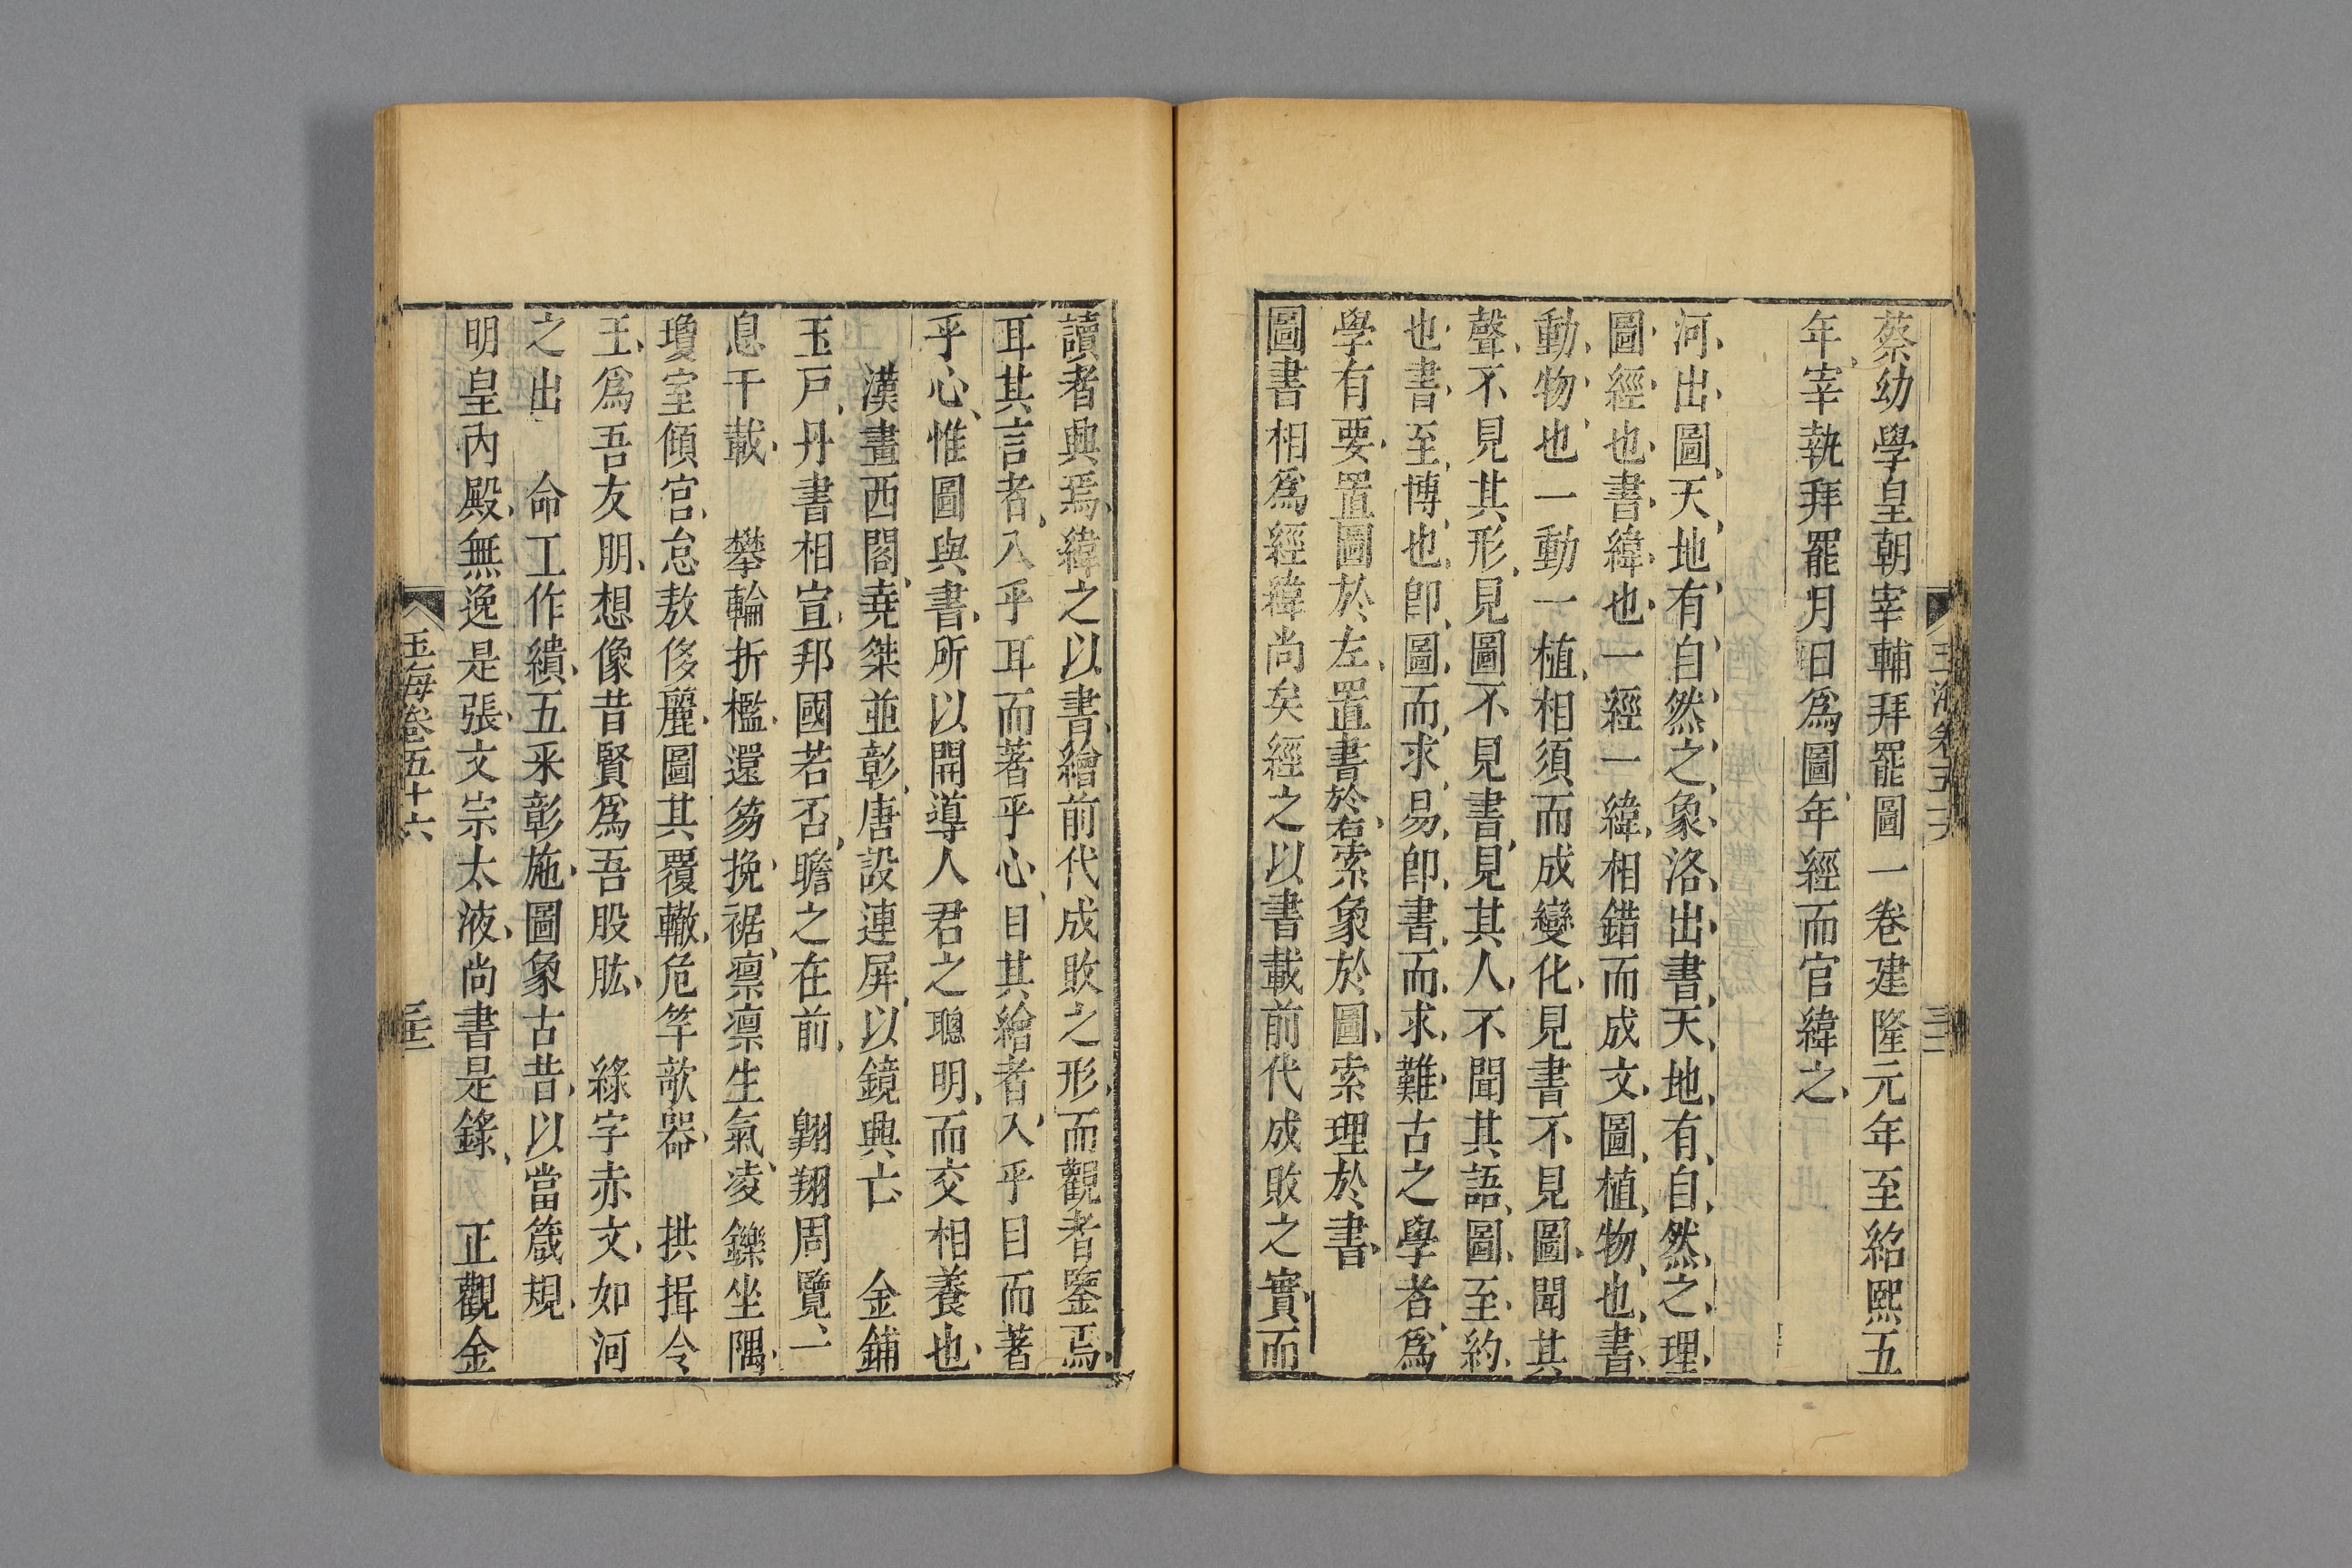 玉海卷五十六
三十一
蔡幼學皇朝宰輔拜罷圖一卷建隆元年至紹熙五
年宰執拜罷月日爲圖年經而官緯之
河出圖天地有自然之象洛出書天地有自然之理
圖經也書緯也一經一緯相錯而成文圖植物也書
動物也一動一植相須而成變化見書不見圖聞其
聲不見其形見圖不見書見其人不聞其語圖至約
也書至博也卽圖而求易卽書而求難古之學者爲
學有要置圖於左置書於右索象於圖索理於書
圖書相爲經緯尚矣經之以書載前代成敗之實而
讀者興焉緯之以書繪前代成敗之形而觀者鑒焉
耳其言者入乎耳而著乎心目其繪者入乎目而著
乎心惟圖與書所以開導人君之聰明而交相養也
漢畫西閣堯桀並彰唐設連屏以鏡興亡　金鋪
玉戸丹書相宣邦國若否瞻之在前　翺翔周覽一
息千載　攀輪折檻還笏挽裾凛凛生氣凌鑠坐隅
瓊室傾宫怠敖侈麗圖其覆轍危竿欹器　拱揖令
王爲吾友朋想像昔賢爲吾股肱　綠字赤文如河
之出　命工作繢五采彰施圖象古昔以當箴規
明皇内殿無逸是張文宗太液尚書是錄　正觀金
玉海卷五十六
三十一